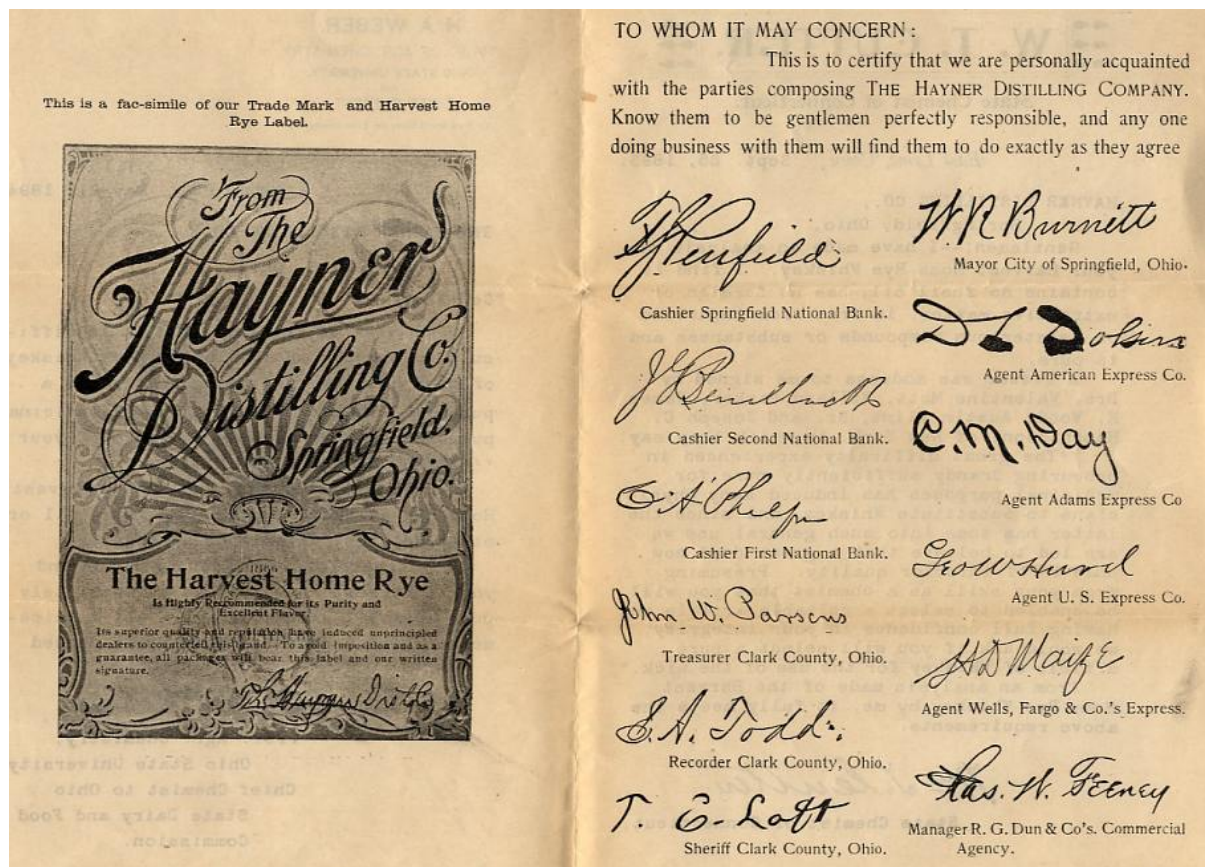 This is a fac-simile of our Trade Mark and Harvest Home
Rye Label.
From
The
Hayner
Distilling Co.
Springfield.
Ohio.
1866
The Harvest Home Rye
Is Highly Recommended for its Purity and
Excellent Flavor.
Its superior quality and reputation have induced unprincipled
dealers to counterfeit this brand. To avoid imposition and as a
guarantee, all packages will bear this label and our written
signature.
The Hayner Distlg
TO WHOM IT MAY CONCERN:
This is to certify that we are personally acquainted
with the parties composing THE HAYNER DISTILLING COMPANY.
Know them to be gentlemen perfectly responsible, and any one
doing business with them will find them to do exactly as they agree
Penfield
Cashier Springfield National Bank.
Cashier Second National Bank.
C. A. Phelps
Cashier First National Bank.
John W. Parsons
Treasurer Clark County, Ohio.
S. A. Todd.
Recorder Clark County, Ohio.
T. E. Lott
Sheriff Clark County, Ohio.
W R Burnett
Mayor City of Springfield, Ohio.
D L
Agent American Express Co.
C. M. Day
Agent Adams Express Co
Geo W Hurd
Agent U. S. Express Co.
Maize
Agent Wells, Fargo & Co.'s Express.
Chas. W. Feeney
Manager R. G. Dun & Co's. Commercial
Agency.